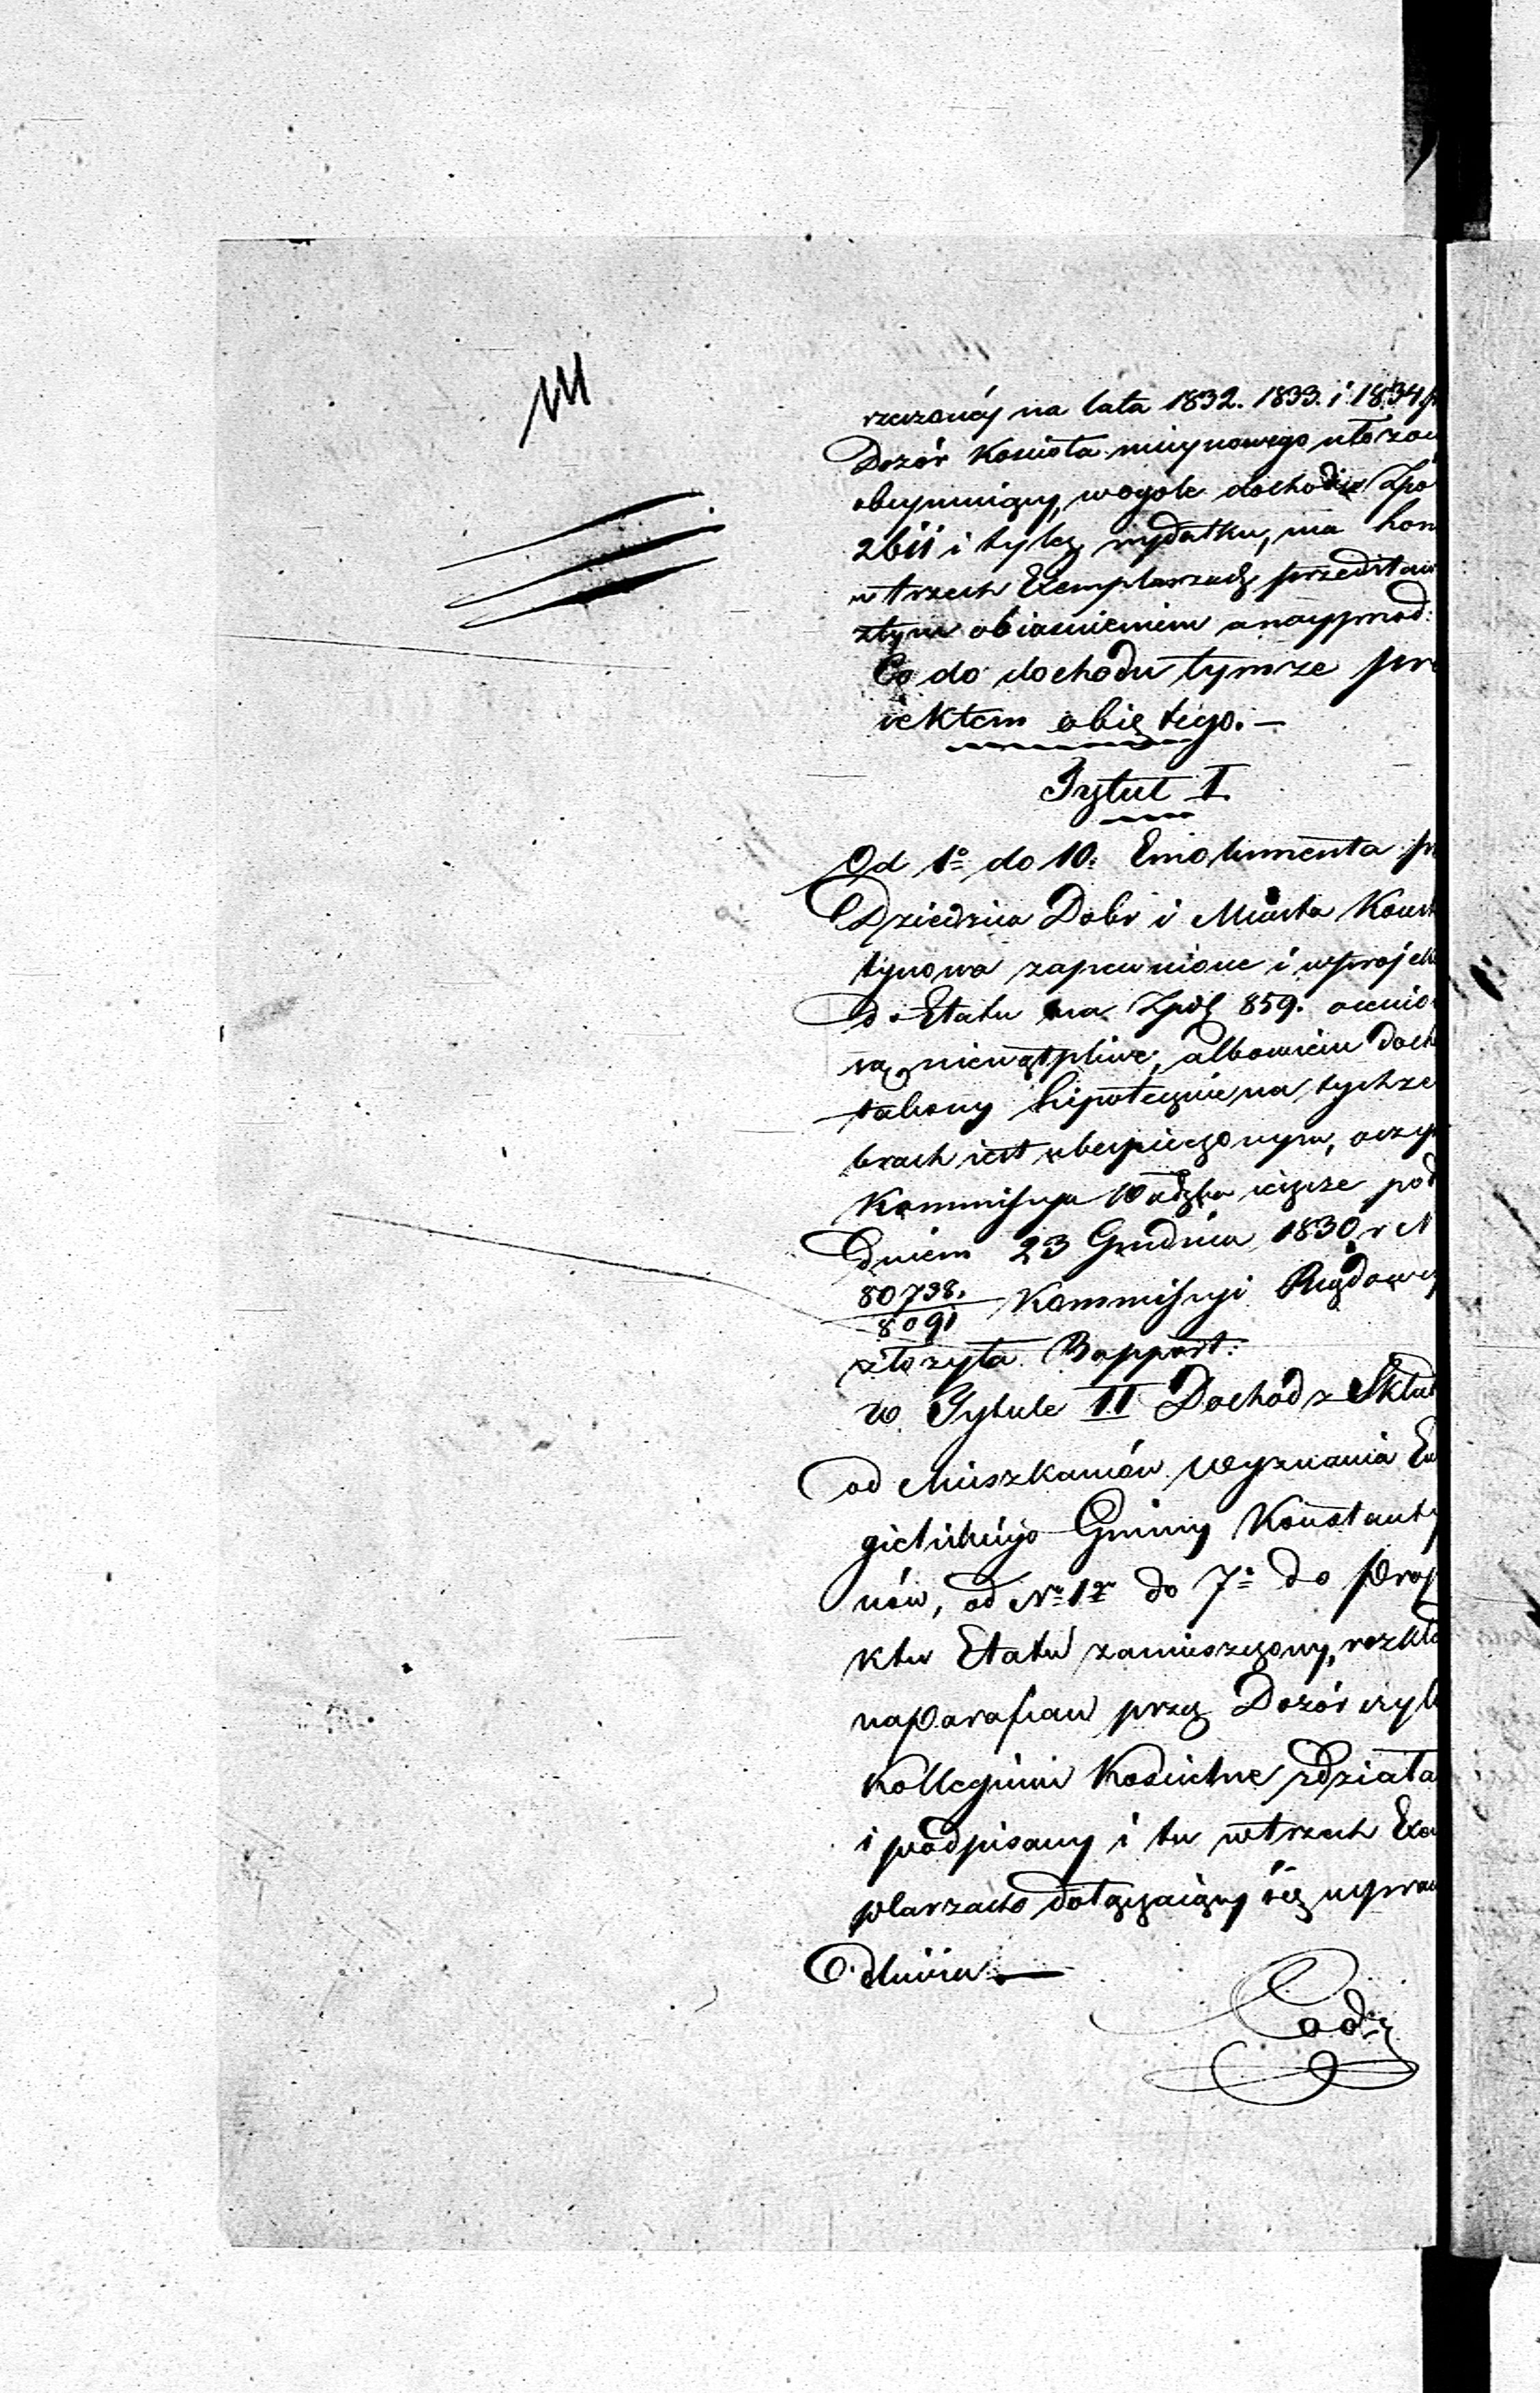 rzeczonéj na lata 1832. 1833. i 1834 p
Dozór Kościoła mieyscowego ułożon
obeymuiący, wogole dochodu Zło
2611 i tyleż wydatku, ma hon
w trzech Exemplarzach przedstaw
ztym obiaśnieniem anayprzod:
Co do dochodu tymże pro
iektem obiętego. —
Tytuł I.
Od 1º do 10. Emolumenta p
Dziedzica Dobr i Miasta Konst
tynowa zapewnione i wprojek
do Etatu na Zpol 859. ocenio
są niewątpliwe, albowiem doch
takowy hipotecznie na tychże
brach iest ubespieczonym, oczy
Kommissya Wdzka ieszcze pod
dniem 23 Grudnia 1830 r N
80798.
8091 Kommissyi Rządowey
złożyła Rapport:
w Tytule II Dochod z Skład
od Mieszkańców Wyznania Ew
gielickiego Gminy Konstanty
nów, od Nº 1º do 7º do Proje
ktu Etatu zamieszczony, rozkła
na parafian przez Dozór czyli
Kollegium Kościelne zdziała
i podpisany i tu w trzech Exe
plarzach dołączaiący się uspraw
dliwia. —